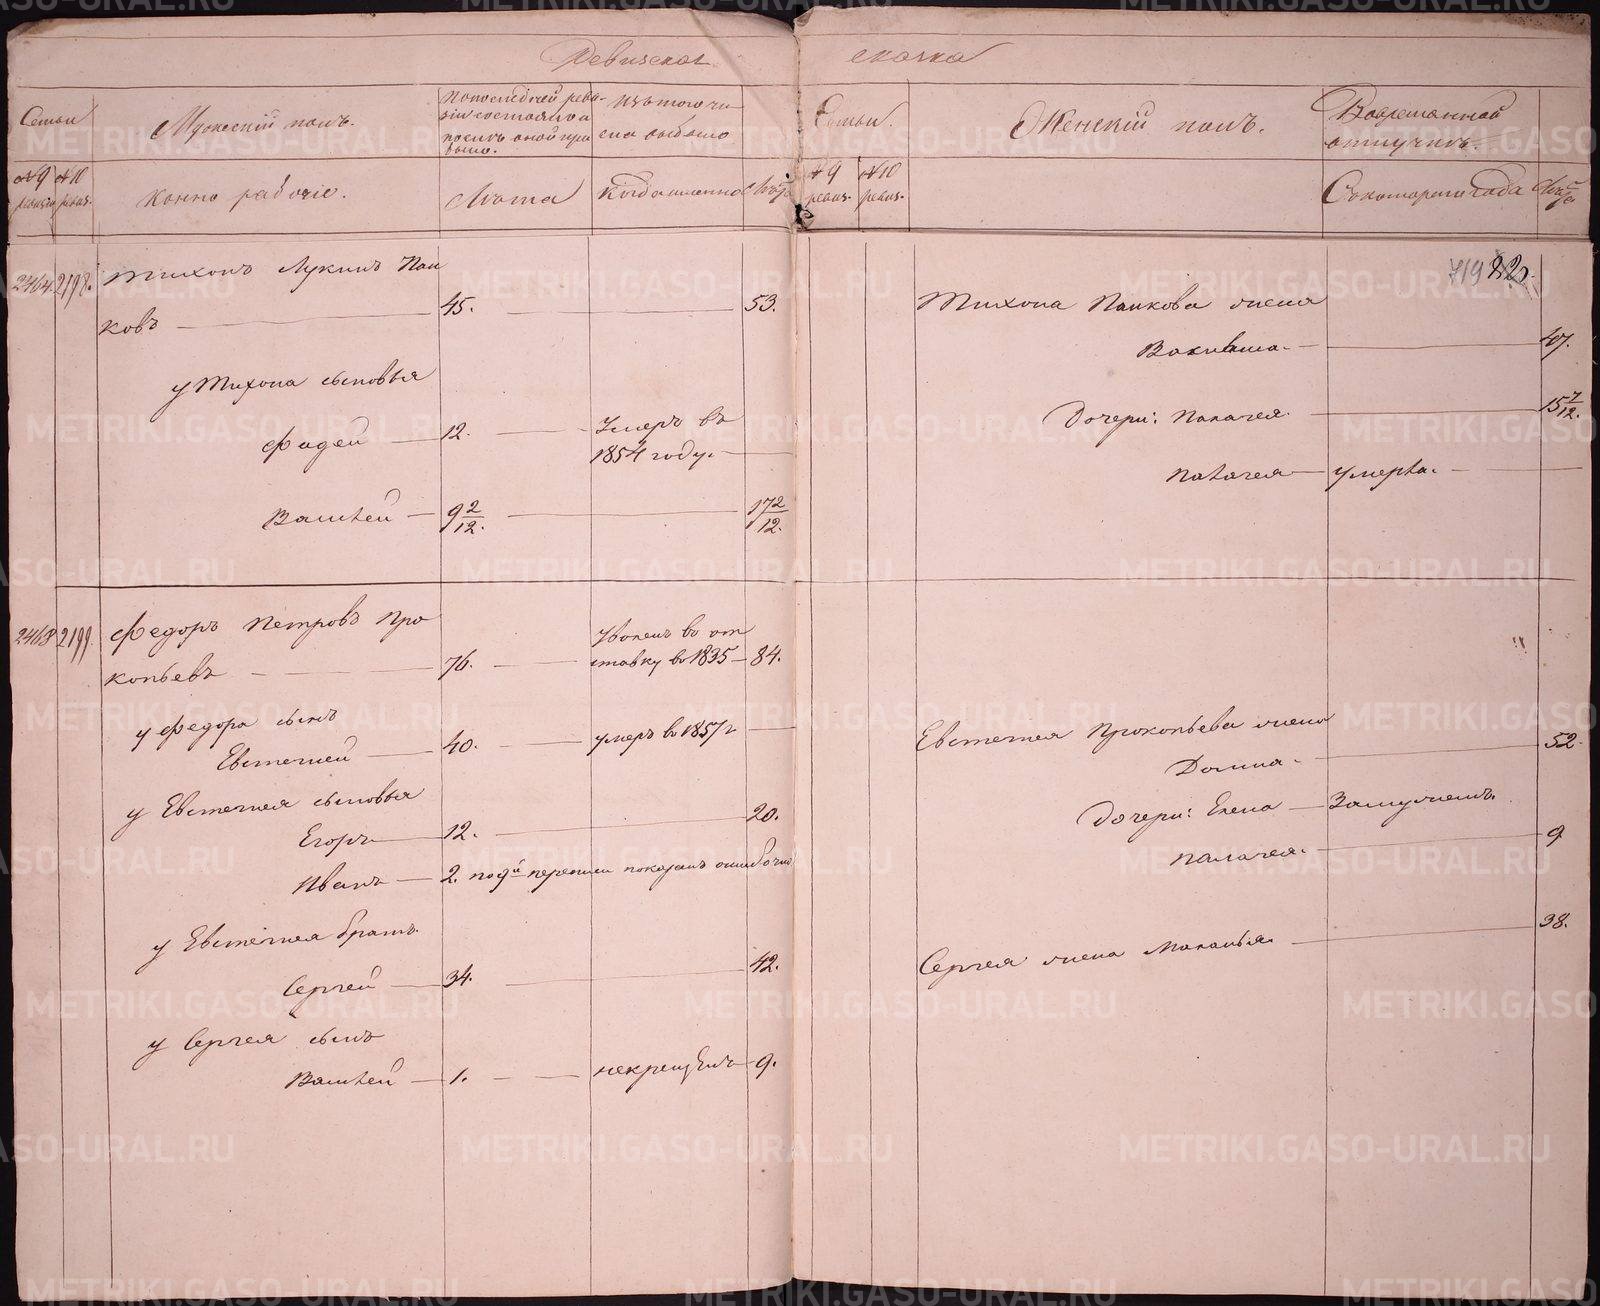 Ревизская сказка
Семьи
Мужескій полъ.
По последней реви-
зіи состояло и
после оной при
было.
Изъ того чи
сла выбыло
Семьи.
Женскій полъ.
Во временной
отлучкѣ.
№ 9 ревизіи
№ 10 ревиз.
Конно рабочіе.
Лѣта
Когда именно
Лѣта
№ 9 ревиз.
№ 10 ревиз.
Съ котораго года
Лѣта
719 82
2464 2198. Тихонъ Лукинъ Пан
ковъ — 45. — 53.
Тихона Панкова жена
— 47.
у Тихона сыновья
Дочери: Палагея — 15 7/12.
Фадей — 12. — Умеръ въ
1854 году. —
Палагея — умерла. —
Василей — 9 2/12. — 17 2/12.
2468 2199. Федоръ Петровъ Про
копьевъ — 76. — Уволенъ во от
ставку въ 1835 — 84.
у Федора сынъ
Евстегней — 40. — умеръ въ 1857 г —
Евстегнея Прокопьева жена
Домна. — 52.
у Евстегнея сыновья
Егоръ — 12. — 20.
Дочери: Елена — Замужемъ.
Иванъ — 2. по 9й переписи показанъ ошибочно
Палагея. — 9
у Евстегнея братъ
Сергей — 34. — 42.
Сергея жена Маланья. — 38.
у Сергея сынъ
Василей — 1. — некрещенъ — 9.
METRIKI.GASO-URAL.RU